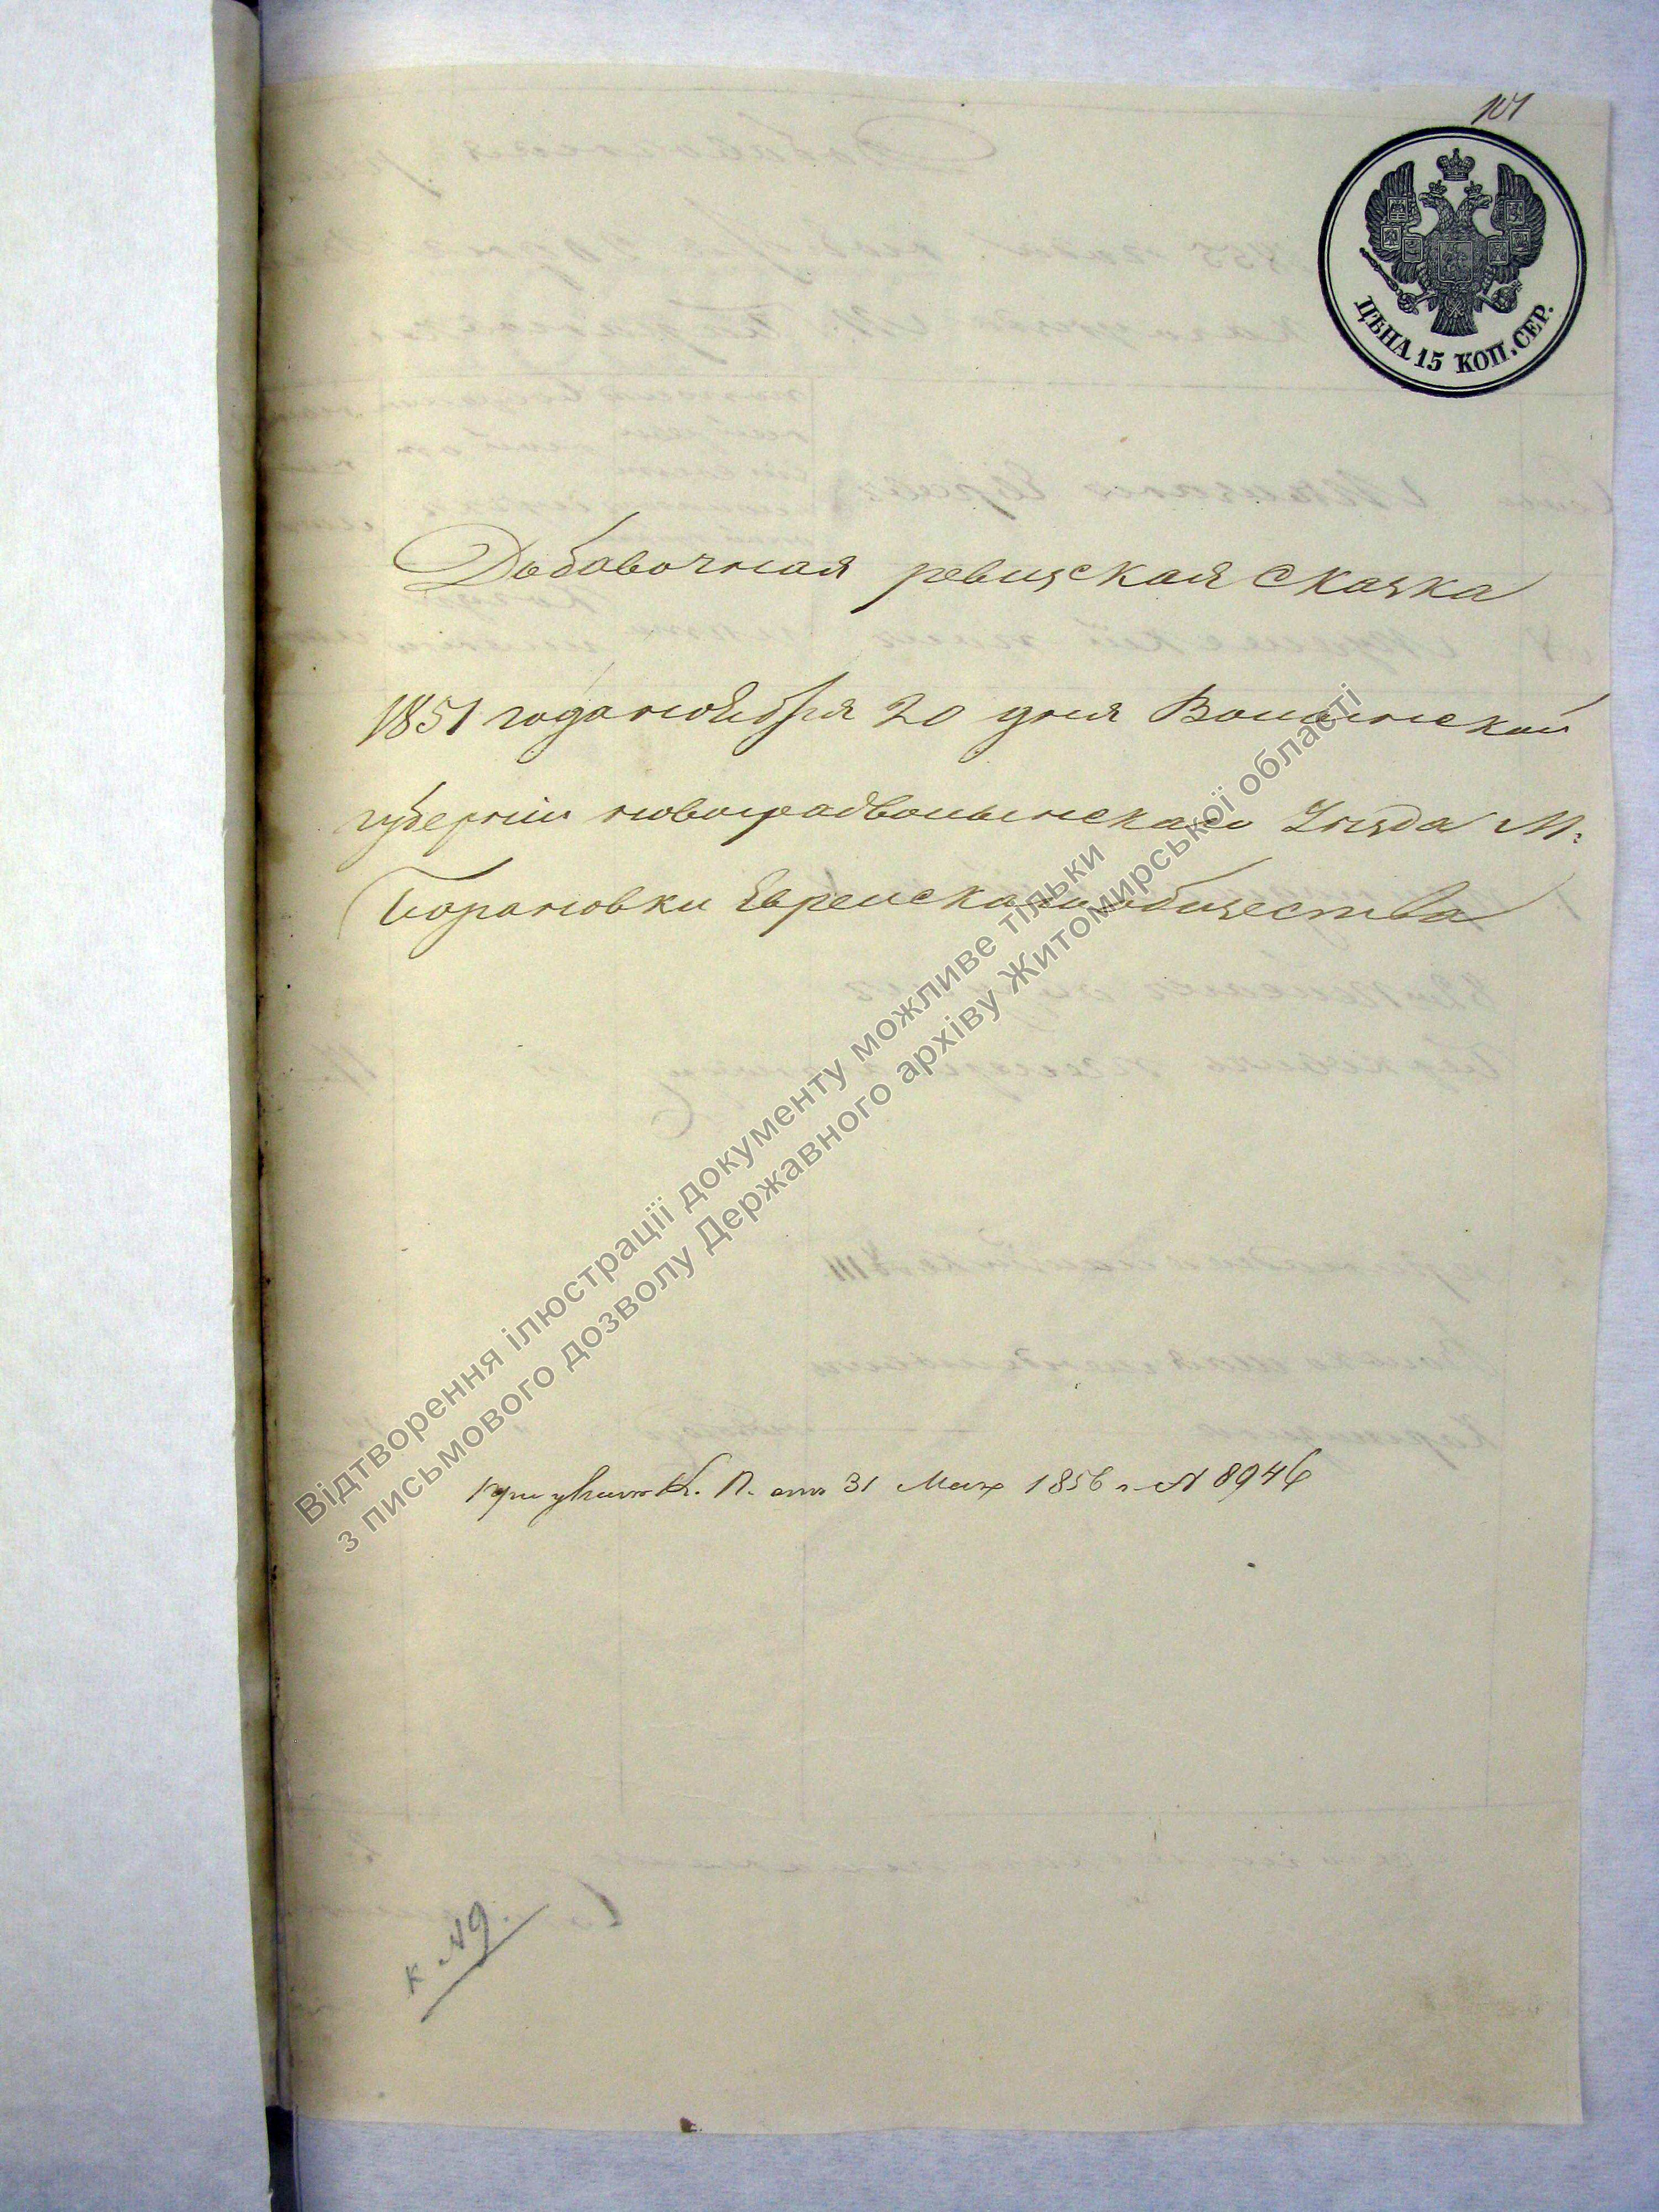 101
ЦѢНА 15 КОП. СЕР.
Добавочная ревизская сказка
1851 года ноября 20 дня Волынской
губернии новоградволынскаго Уезда М:
Барановки Еврейскаго общества
При указе К. П. отъ 31 Мая 1856 г. № 8946
к №9.
Відтворення ілюстрації документу можливе тільки
з письмового дозволу Державного архіву Житомирської області